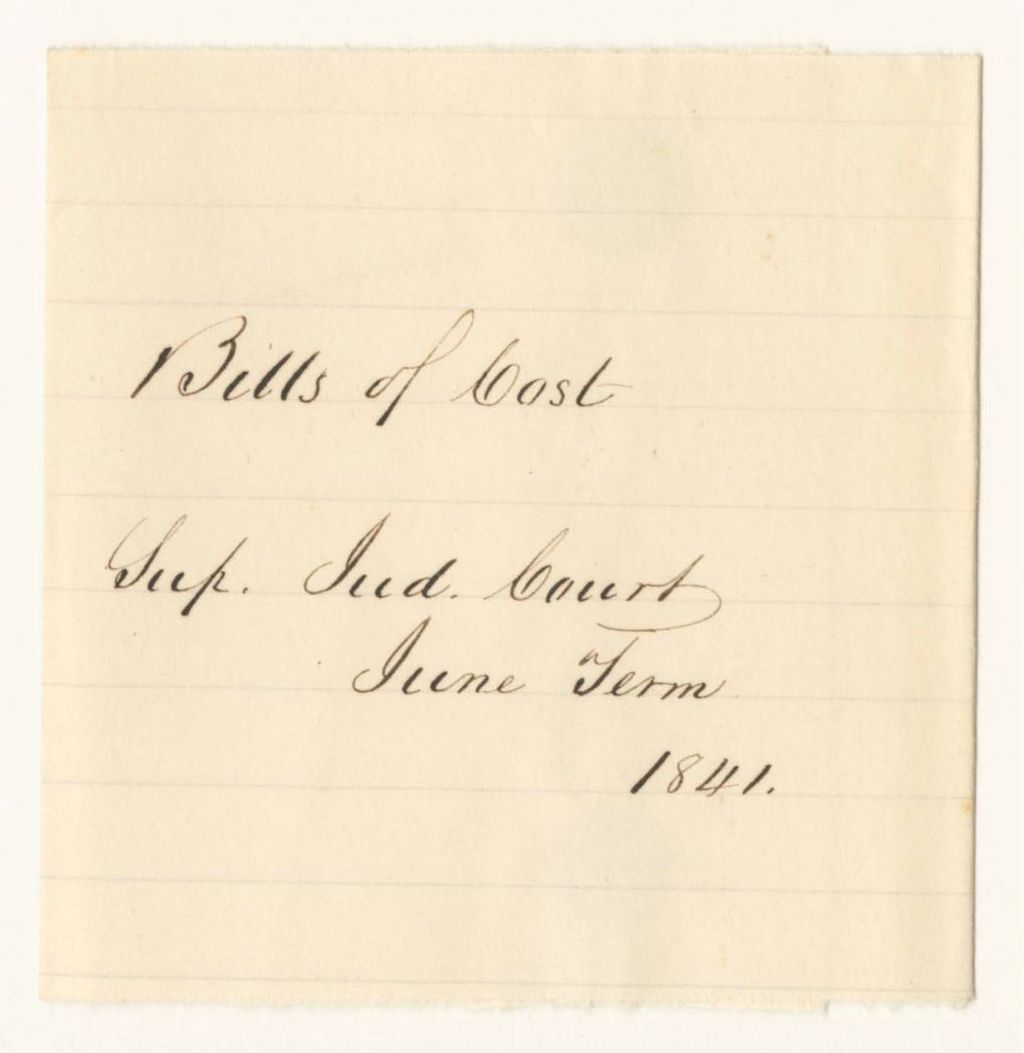 Bills of Cost
Sup. Jud. Court
June Term
1841.